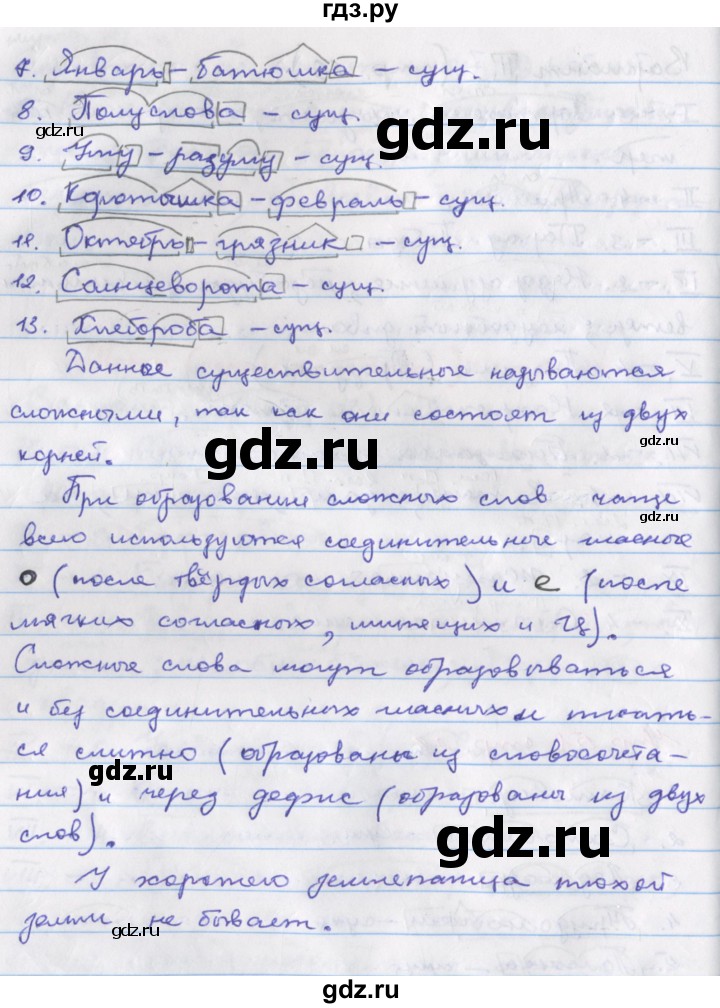 гдз.ру
7. Январь - батюшка - сущ.
8. Полуслова - сущ.
gdz.ru
gdz.ru
9. Уму - разуму - сущ.
gdz.ru
10. Коротышка - февраль - сущ.
11. Октябрь - грязник - сущ.
gdz.ru
12. Солнцеворота - сущ.
13. Хлебороба - сущ.
Данное существительные называются
сложными, так как они состоят из двух
gdz.ru
корней.
gdz.ru
При образовании сложных слов чаще
gdz.ru
всего используются соединительные гласные
о (после твёрдых согласных) и е (после
мягких согласных, шипящих и ц).
gdz.ru
Сложные слова могут образовываться
и без соединительных гласных и писать-
ся слитно (образованы из словосочета-
gdz.ru
ния) и через дефис (образованы из двух
слов).
gdz.ru
gdz.ru
У хорошего земпепатца плохой
земли не бывает.
gdz.ru
gdz.ru
gdz.ru